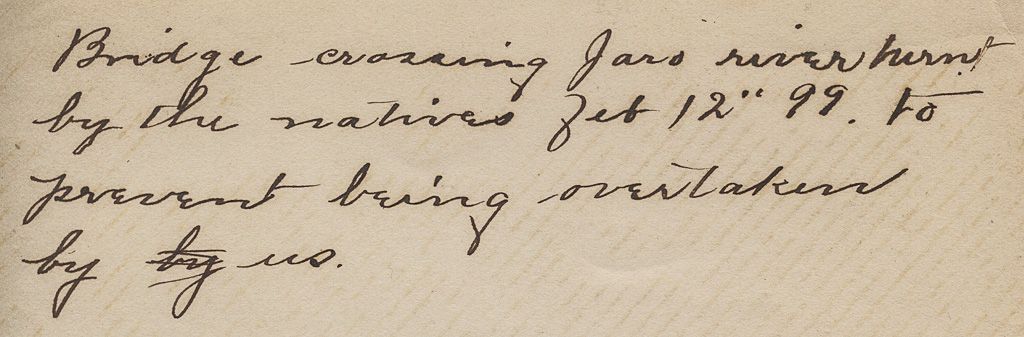 Bridge crossing Jaro river burnt
by the natives Feb 12" 99. to
prevent being overtaken
by by us.